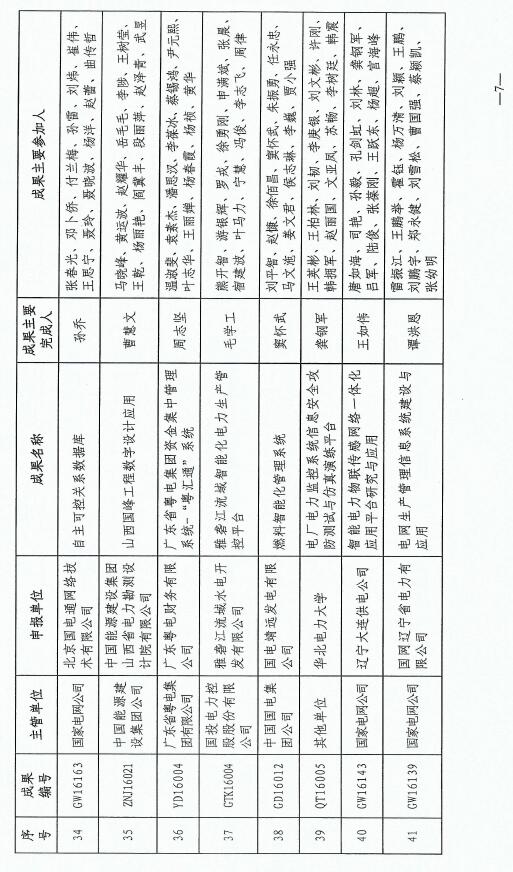 序号
成果编号
主管单位
申报单位
成果名称
成果主要完成人
成果主要参加人
34
GW16163
国家电网公司
北京国电通网络技
术有限公司
自主可控关系数据库
孙乔
张春光、邓卜侨、付兰梅、孙雷、刘炜、崔伟、
王思宁、聂玲、聂晓波、杨洋、赵蕾、曲传哲
35
ZNJ16021
中国能源建
设集团公司
中国能源建设集团
山西省电力勘测设
计院有限公司
山西国峰工程数字设计应用
曹慧文
马晓峰、黄运波、赵耀华、岳毛毛、李陟、王树莹、
王乾、杨丽艳、阎冀丰、段丽萍、赵泽青、武昱
36
YD16004
广东省粤电集
团有限公司
广东粤电财务有限
公司
广东省粤电集团资金集中管理
系统-“粤汇通”系统
周志坚
温淑斐、袁素杰、潘思汉、李葆冰、蔡锡鸿、尹元熙、
叶志华、王丽婵、杨春霞、杨桢、黄华
37
GTK16004
国投电力控
股股份有限
公司
雅砻江流域水电开
发有限公司
雅砻江流域智能化电力生产管
控平台
毛学工
熊开智、游银辉、罗戎、徐勇刚、申满斌、张晨、
宿建波、叶马力、宁慧、冯俊、李志飞、周律
38
GD16012
中国国电集
团公司
国电靖远发电有限
公司
燃料智能化管理系统
窦怀武
刘平智、赵慷、徐佰昌、窦怀武、朱振勇、任永忠、
马文池、姜文君、侯志琳、李巍、贾小强
39
QT16005
其他单位
华北电力大学
电厂电力监控系统信息安全攻
防测试与仿真演练平台
龚钢军
王英彬、王柏林、刘韧、李庚银、刘文彬、许刚、
韩拥军、赵丽国、文亚凤、苏畅、李树廷、韩震
40
GW16143
国家电网公司
辽宁大连供电公司
智能电力物联传感网络一体化
应用平台研究与应用
王如伟
唐如海、司艳、孙毅、孔剑虹、刘林、龚钢军、
吕军、陆俊、张葆刚、王跃东、杨超、官海峰
41
GW16139
国家电网公司
国网辽宁省电力有
限公司
电网生产管理信息系统建设与
应用
谭洪恩
雷振江、王鹏举、霍钰、杨万清、刘颖、王鹏、
刘鹏宇、郑永健、刘雪松、曹国强、蔡颖凯、
张幼明
—7—